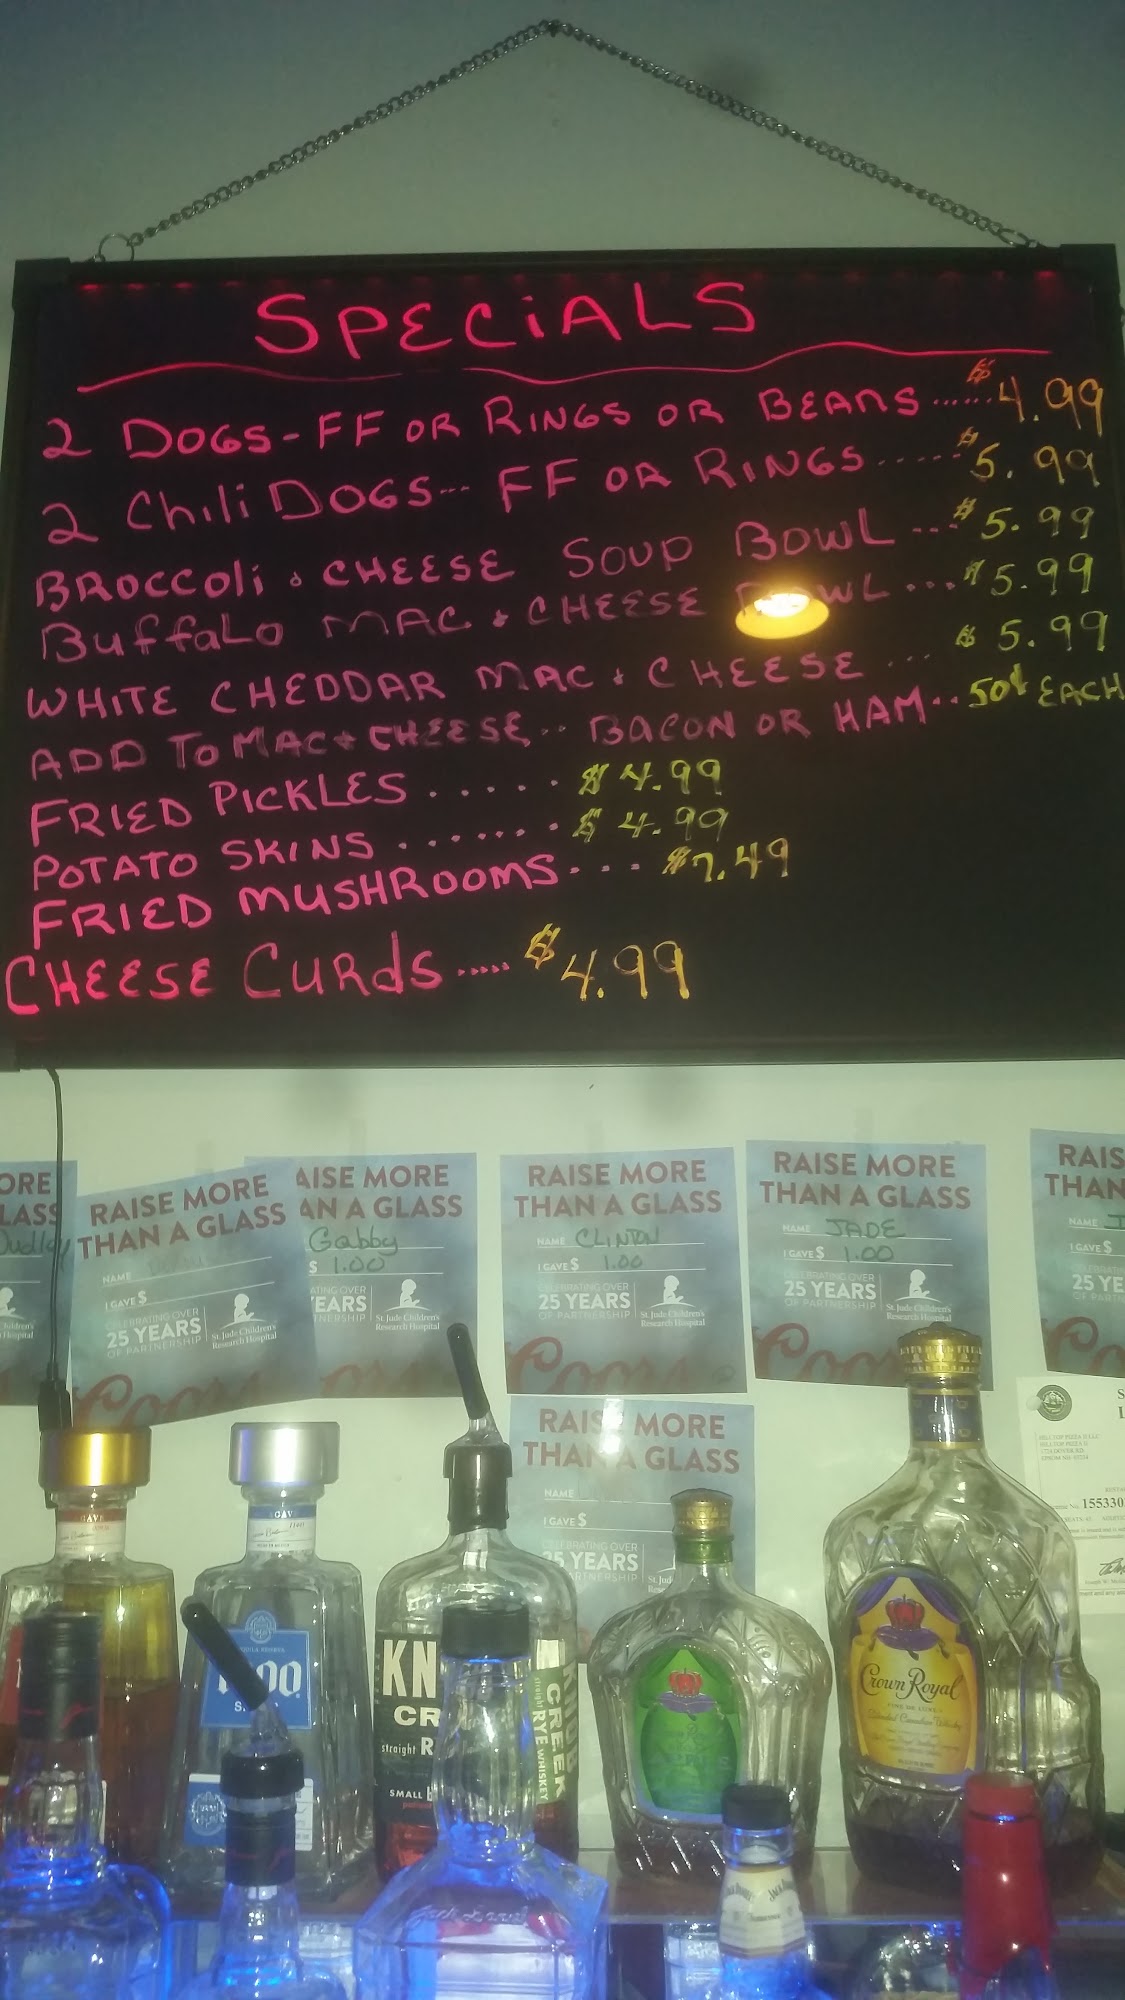 SPECIALS
2 DOGS - FF OR RINGS OR BEANS ...... $4.99
2 Chili DOGS --- FF OR RINGS ..... $5.99
BROCCOLI & CHEESE SOUP BOWL ... $5.99
BUFFALO MAC & CHEESE BOWL ... $5.99
WHITE CHEDDAR MAC & CHEESE ... $5.99
ADD TO MAC & CHEESE... BACON OR HAM.. 50¢ EACH
FRIED PICKLES ..... $4.99
POTATO SKINS ....... $4.99
FRIED MUSHROOMS... $7.49
CHEESE CURDS ..... $4.99
RAISE MORE
THAN A GLASS
NAME
I GAVE $
CELEBRATING OVER
25 YEARS
OF PARTNERSHIP
St. Jude Children's
Research Hospital
Coors
AISE MORE
AN A GLASS
Gabby
$ 1.00
ATING OVER
YEARS
NERSHIP
St. Jude Children's
Research Hospital
RAISE MORE
THAN A GLASS
NAME CLINTON
I GAVE $ 1.00
CELEBRATING OVER
25 YEARS
OF PARTNERSHIP
St. Jude Children's
Research Hospital
Coors
RAISE MORE
THAN A GLASS
NAME JADE
I GAVE $ 1.00
CELEBRATING OVER
25 YEARS
OF PARTNERSHIP
St. Jude Children's
Research Hospital
Coors
RAIS
THAN
NAME
I GAVE $
25 YE
ORE
LASS
Dudley
RAISE MORE
THAN A GLASS
NAME
I GAVE $
CELEBRATING OVER
25 YEARS
RTNERSHIP
St. Jud
HILLTOP PIZZA II LLC
HILLTOP PIZZA II
155330
KN
CR
straight R
SMALL
CREEK
straight RYE WHISKEY
Crown Royal
Blended Canadian Whisky
Crown Royal
APPLE